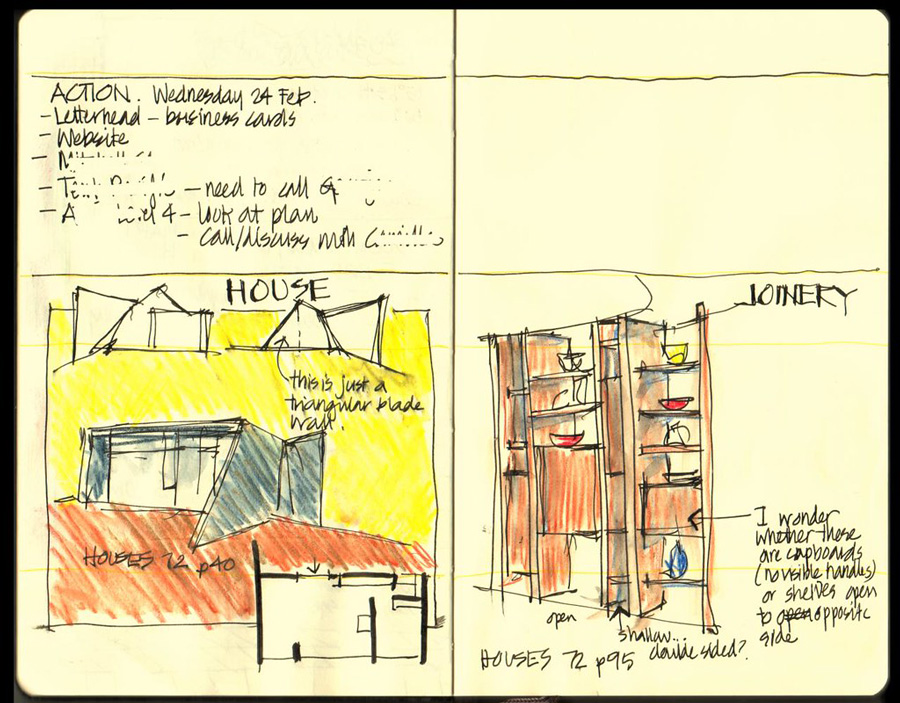 ACTION. Wednesday 24 Feb.
- Letterhead - business cards
- Website
-
- need to call
- 4 - look at plan
- call/discuss with
HOUSE
this is just a
triangular blade
wall.
HOUSES 72 p40
JOINERY
I wonder
whether these
are cupboards
(no visible handles)
or shelves open
to opposite
side
open
shallow..
double sided?
HOUSES 72 p95